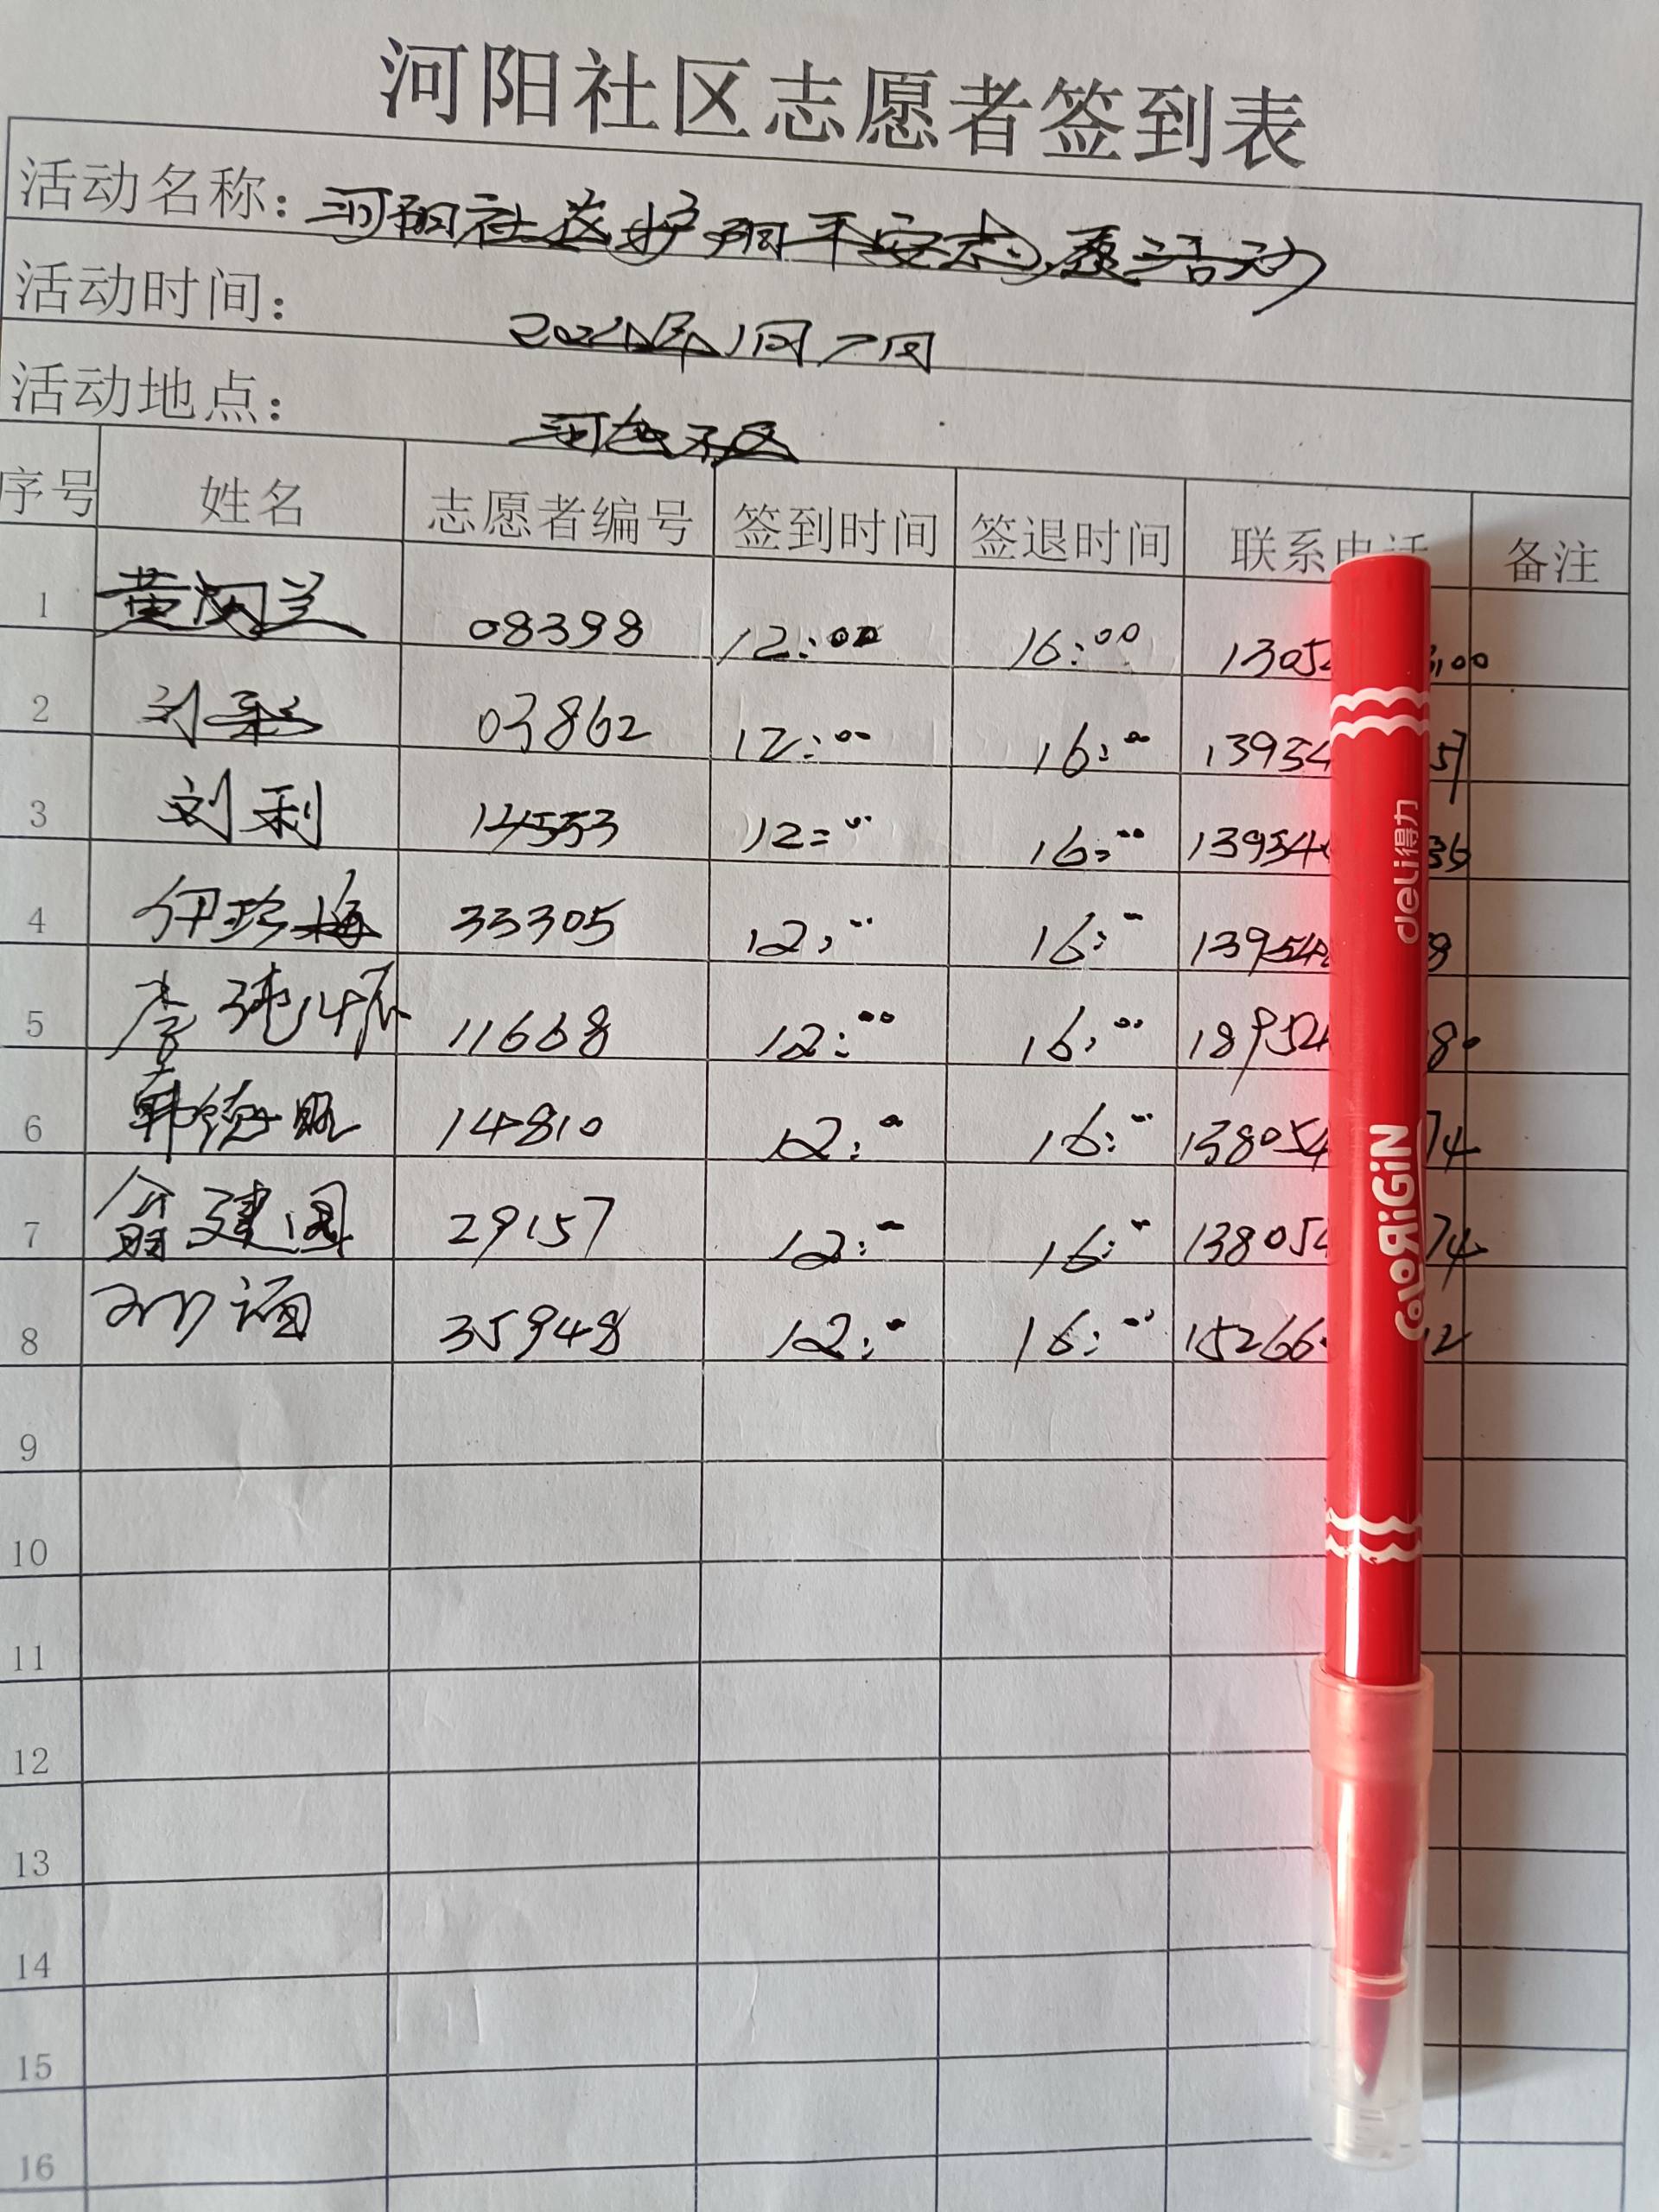 河阳社区志愿者签到表
活动名称：河阳社区护阳平安志愿活动
活动时间：年1月7日
活动地点：
序号 姓名 志愿者编号 签到时间 签退时间 联系电话 备注
1 黄 兰 08398 12:00 16:00 1305 00
2 刘 03862 12:00 16:00 13954 57
3 刘利 14553 12:00 16:00 13954 35
4 伊珍梅 33305 12:00 16:00 13954 8
5 李 11668 12:00 16:00 18954 80
6 韩德 14810 12:00 16:00 138054 74
7 翁建国 29157 12:00 16:00 138054 74
8 35948 12:00 16:00 15266 12
9
10
11
12
13
14
15
16
deli得力
COLORiGiN